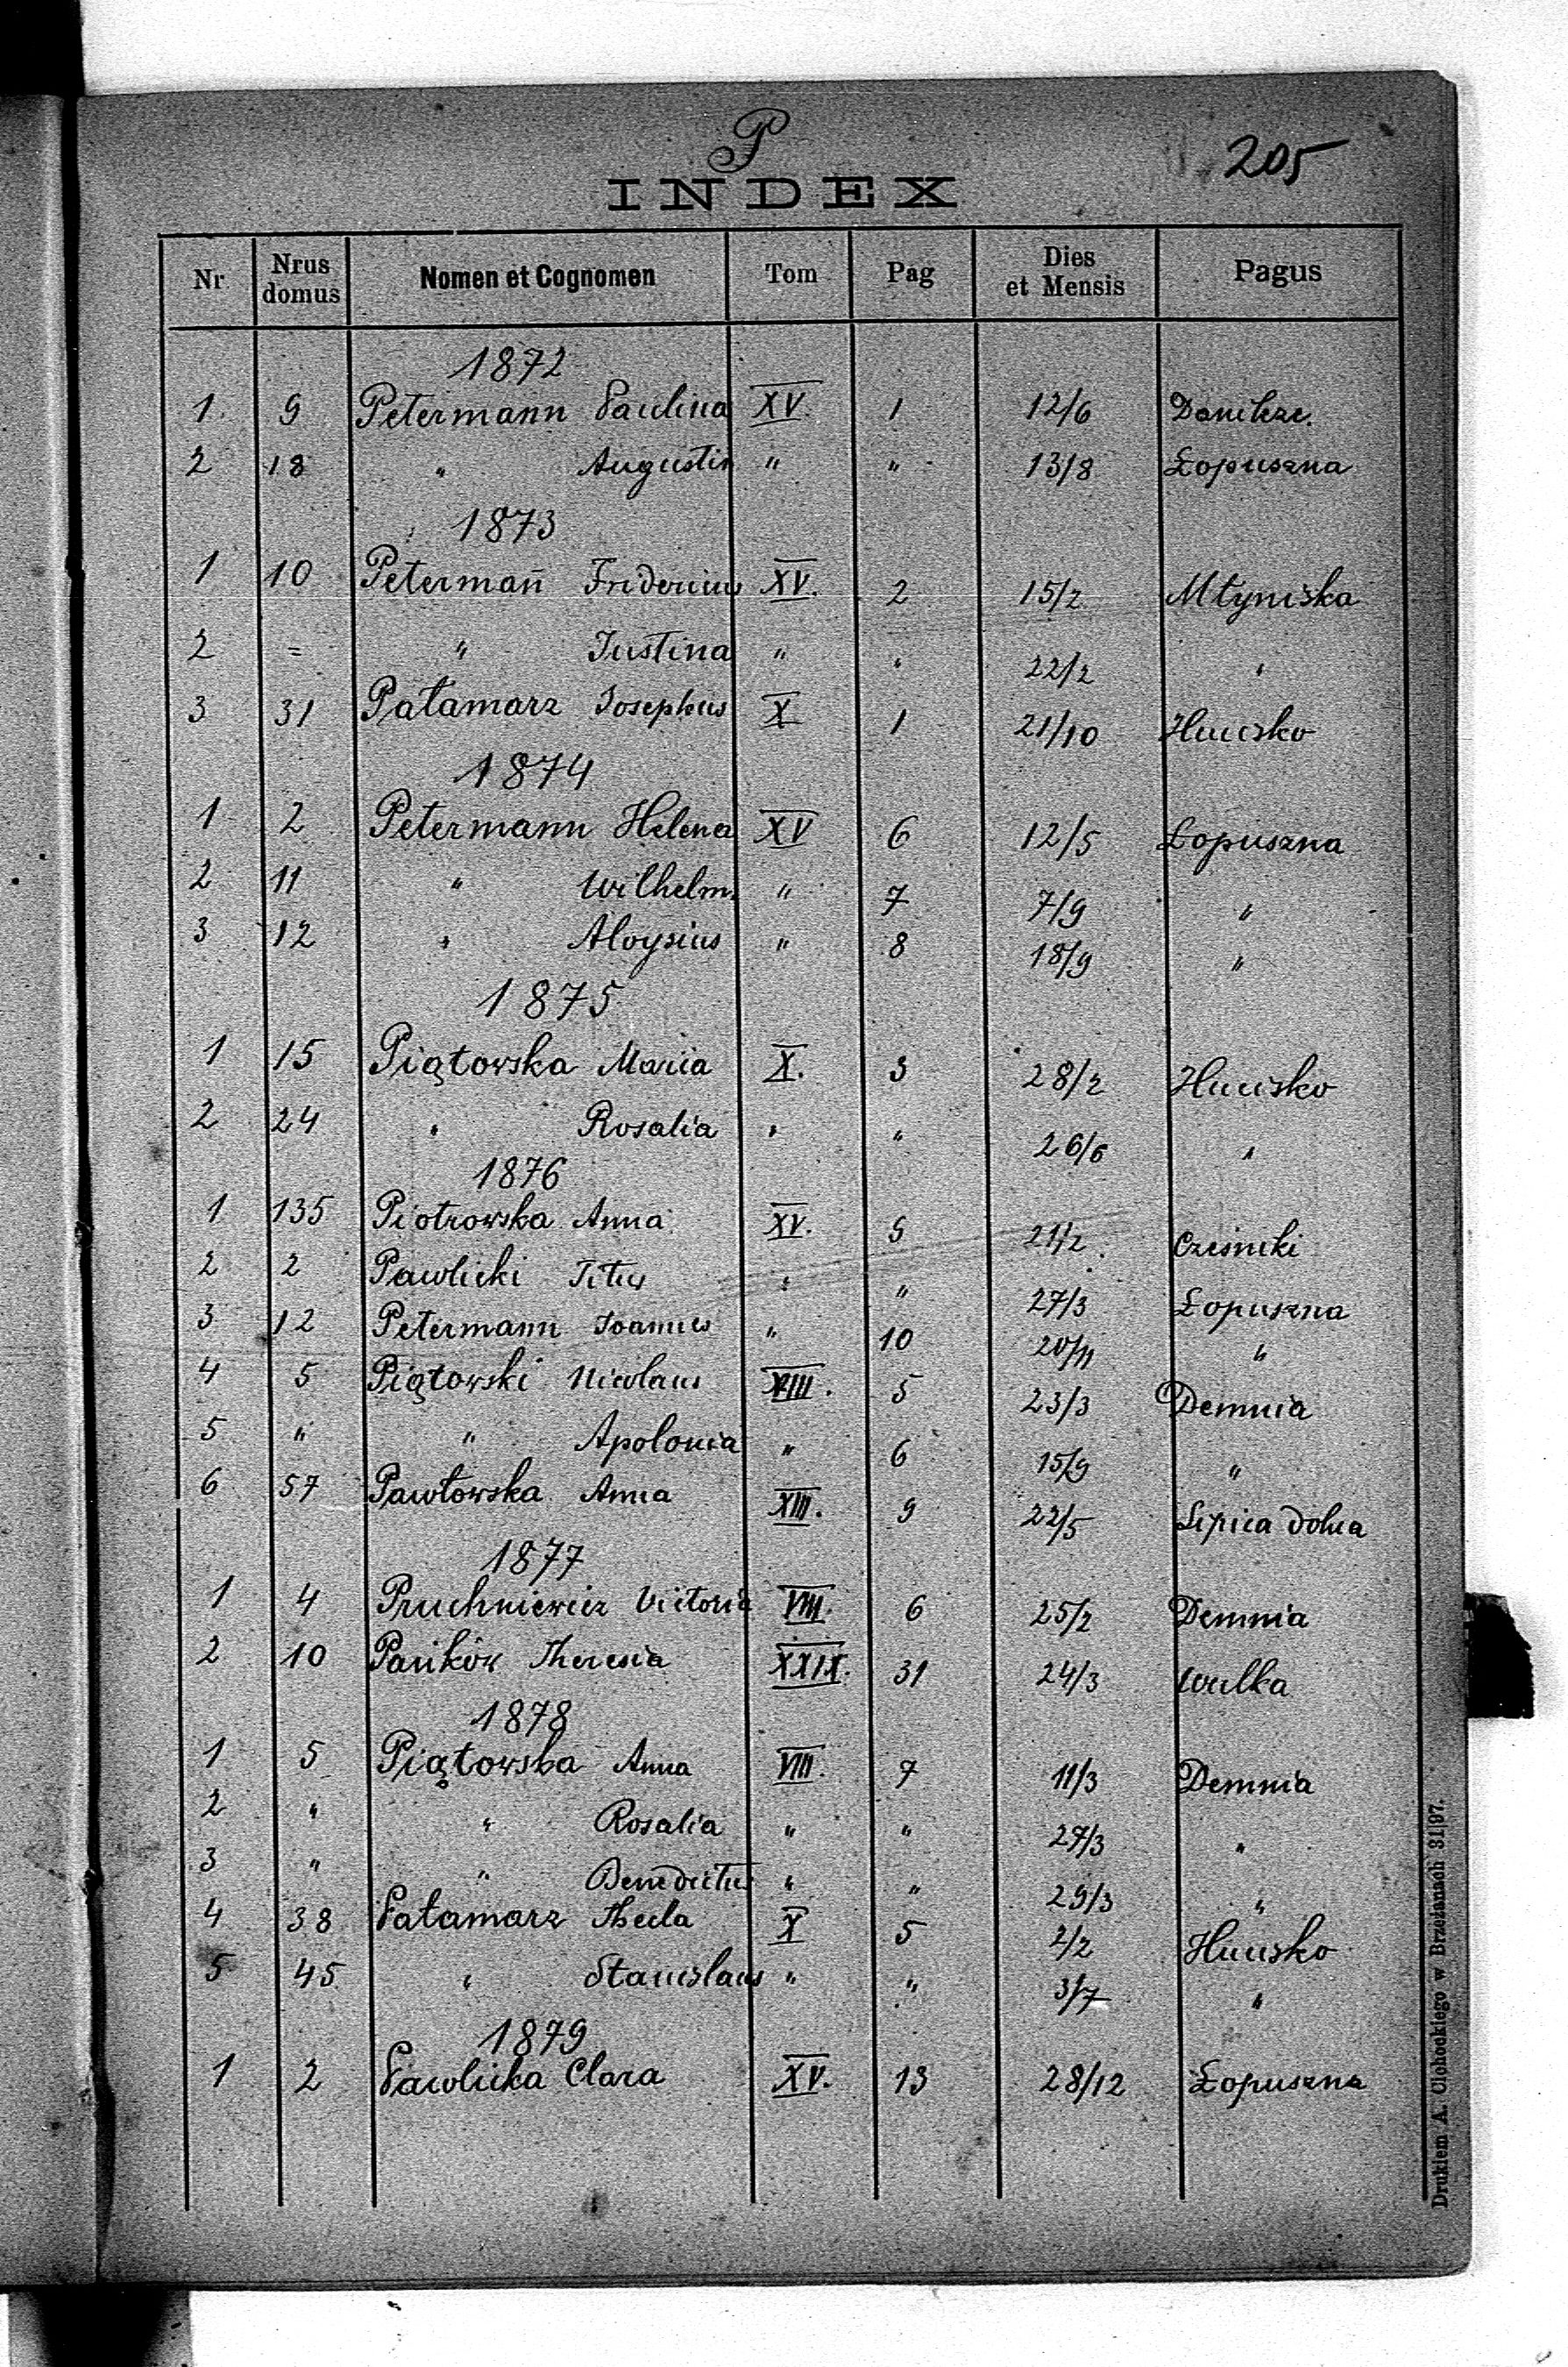 P
205
INDEX
Nr Nrus domus Nomen et Cognomen Tom Pag Dies et Mensis Pagus
1872
1 9 Petermann Paulina XV. 1 12/6 Danilcze.
2 18 " Augustin " " 13/8 Łopuszna
1873
1 10 Petermañ Fridericus XV. 2 15/2 Młyniska
2 = " Justina " " 22/2 "
3 31 Pałamarz Josephus X 1 21/10 Hucisko
1874
1 2 Petermann Helena XV 6 12/5 Łopuszna
2 11 " Wilhelm. " 7 7/9 "
3 12 " Aloysius " 8 18/9 "
1875
1 15 Piątowska Maria X. 3 28/2 Hucisko
2 24 " Rosalia " " 26/6 "
1876
1 135 Piotrowska Anna XV. 9 21/2 Cześniki
2 2 Pawlicki Titus " " 27/3 Łopuszna
3 12 Petermann Joannes " 10 20/11 "
4 5 Piątowski Nicolaus VIII. 5 23/3 Demnia
5 " " Apolonia " 6 15/9 "
6 57 Pawłowska Anna XIII. 9 22/5 Lipica dolna
1877
1 4 Pruchniewicz Victoria VIII. 6 25/2 Demnia
2 10 Pańków Theresia XXIX. 31 24/3 Wulka
1878
1 5 Piątowska Anna VIII. 7 11/3 Demnia
2 " " Rosalia " " 27/3 "
3 " " Benedictus " " 29/3 "
4 38 Pałamarz Thecla X 5 2/2 Hucisko
5 45 " Stanislaus " " 3/7 "
1879
1 2 Pawlicka Clara XV. 13 28/12 Łopuszna
Drukiem A. Cichockiego w Brzeżanach 31|97.